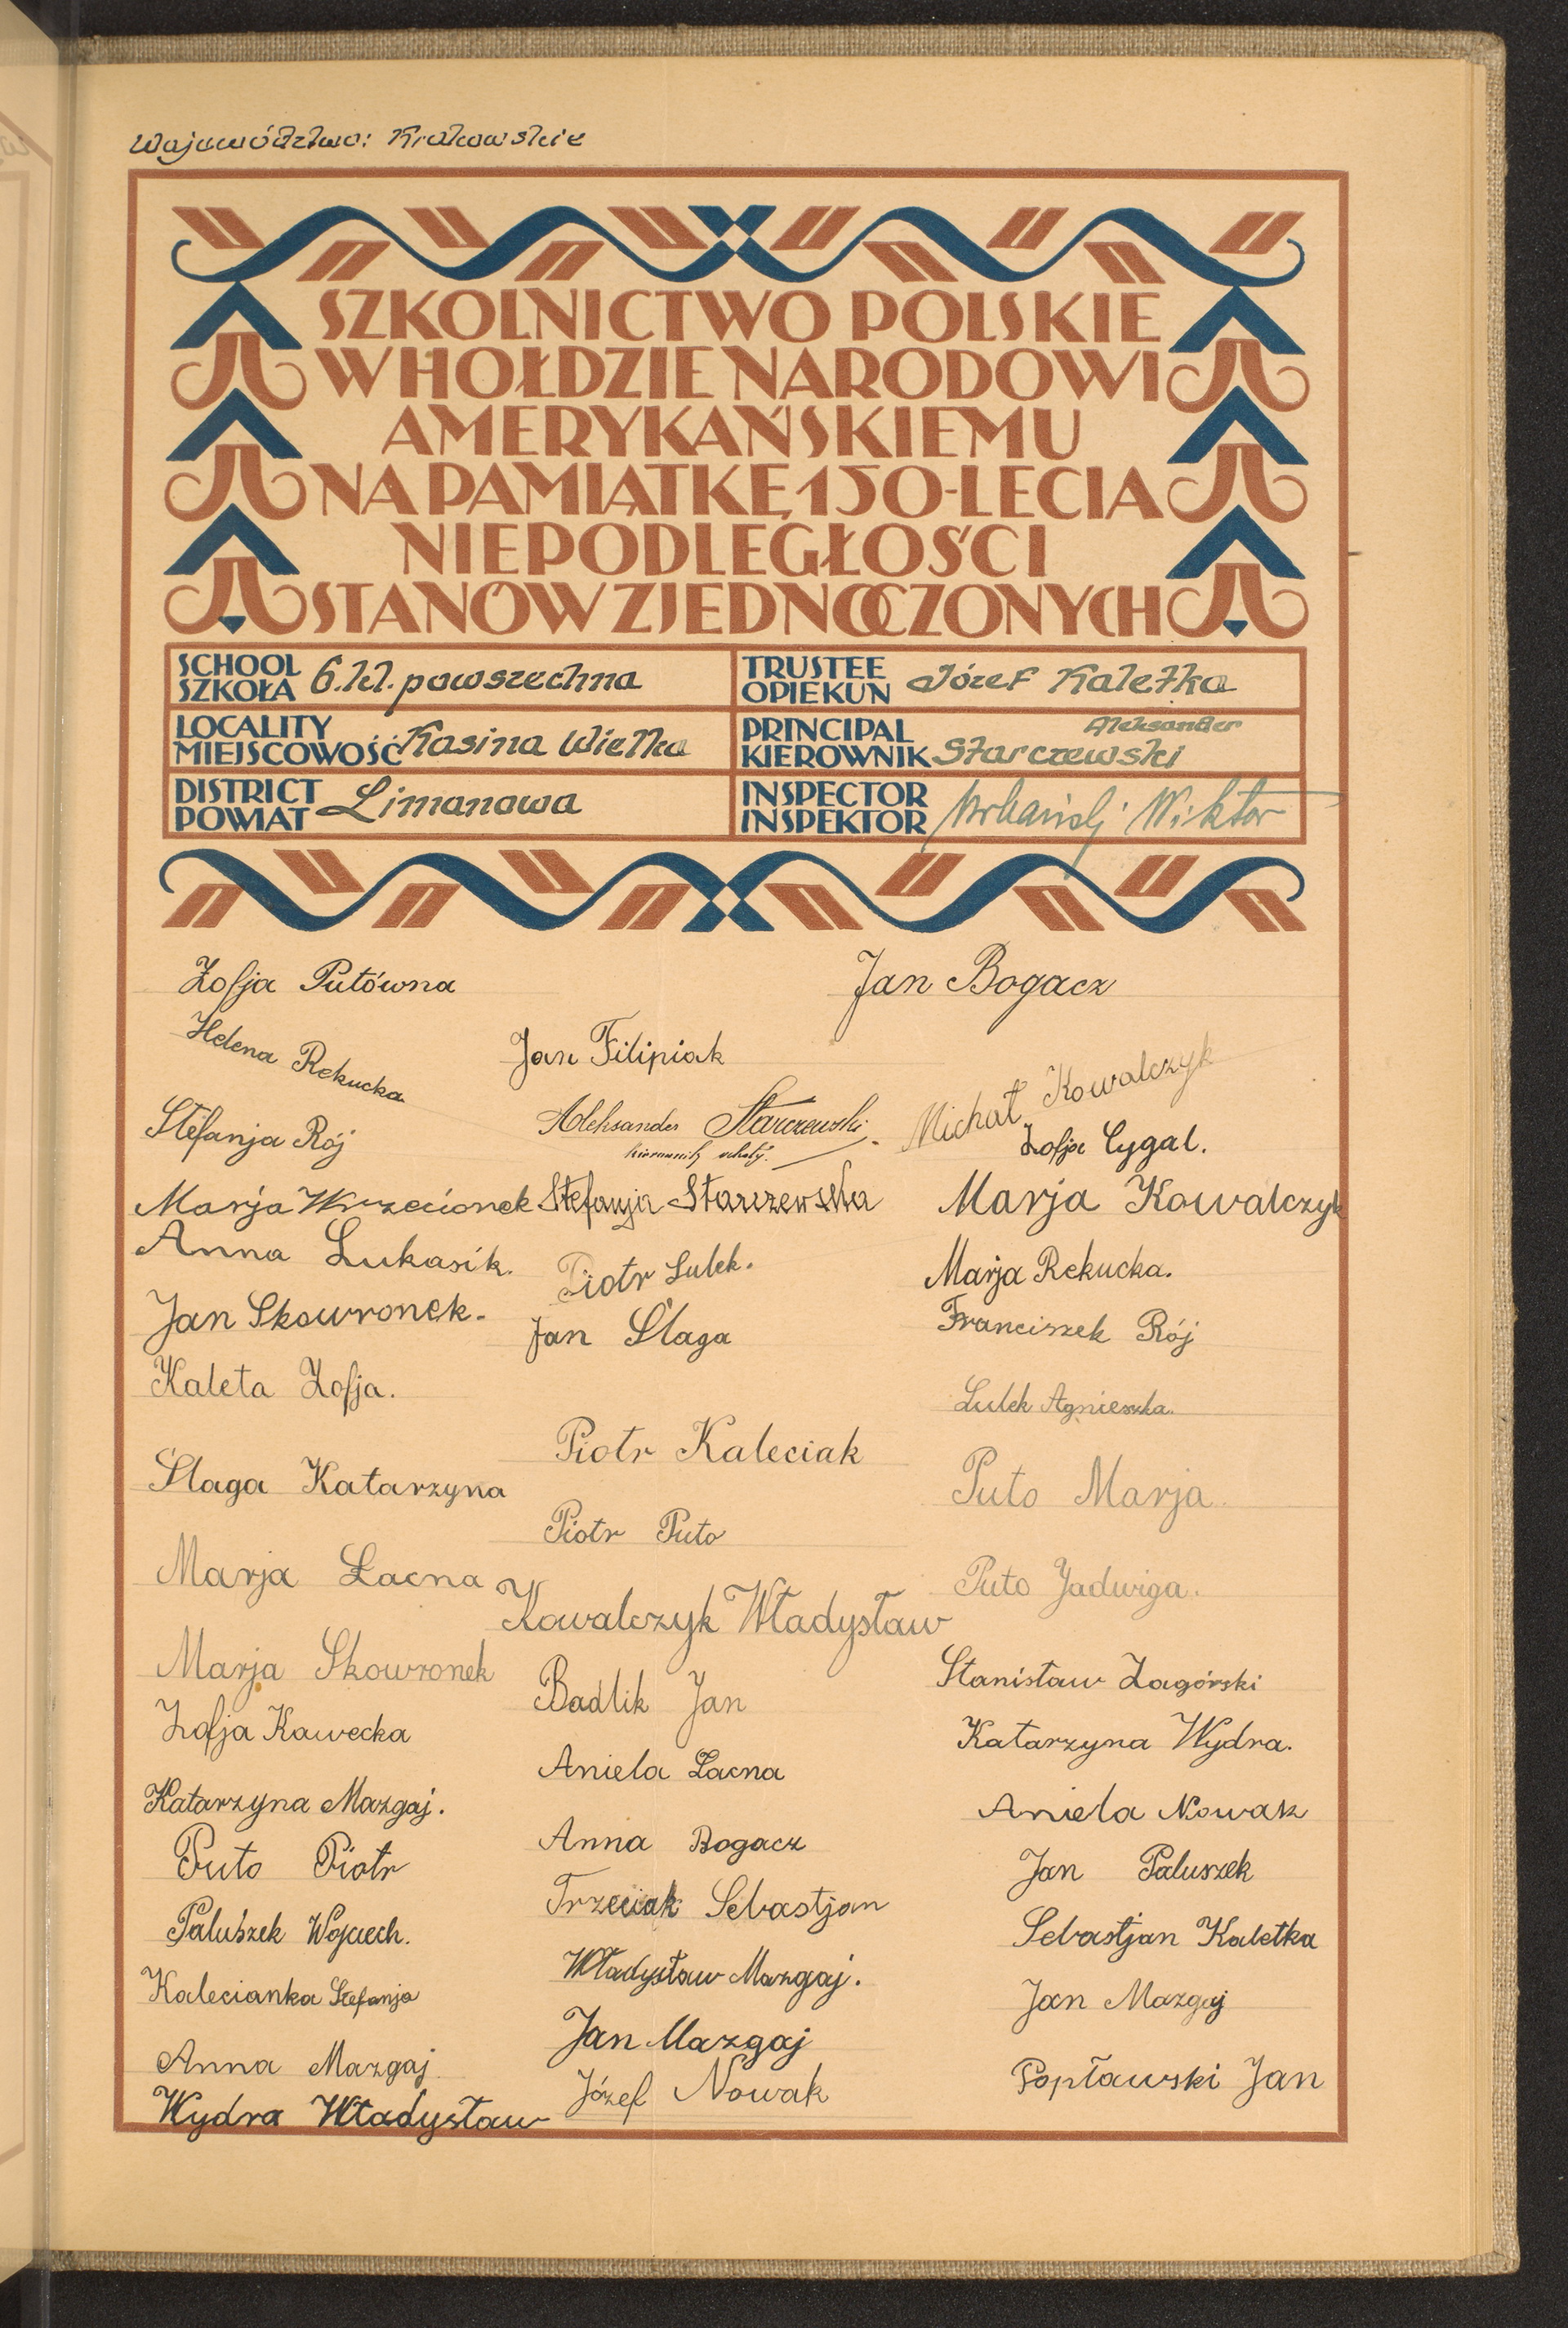 Województwo: Krakowskie
SZKOLNICTWO POLSKIE
W HOŁDZIE NARODOWI
AMERYKAŃSKIEMU
NA PAMIĄTKĘ 150-LECIA
NIEPODLEGŁOŚCI
STANÓW ZJEDNOCZONYCH
SCHOOL
SZKOŁA
6.kl. powszechna
TRUSTEE
OPIEKUN
Józef Kaletka
LOCALITY
MIEJSCOWOŚĆ
Kasina Wielka
PRINCIPAL
KIEROWNIK
Aleksander
Starczewski
DISTRICT
POWIAT
Limanowa
INSPECTOR
INSPEKTOR
Wiktor
Zofja Putówna
Helena Rekucka
Stefanja Rój
Marja Wrzecionek
Anna Łukasik.
Jan Skowronek.
Kaleta Zofja.
Ślaga Katarzyna
Marja Łacna
Marja Skowronek
Zofja Kawecka
Katarzyna Mazgaj.
Puto Piotr
Paluszek Wojciech.
Kalecianka Stefanja
Anna Mazgaj
Wydra Władysław
Jan Filipiak
Aleksander Starczewski
kierownik szkoły.
Stefanja Starczewska
Piotr Lulek.
Jan Ślaga
Piotr Kaleciak
Piotr Puto
Kowalczyk Władysław
Badlik Jan
Aniela Łacna
Anna Bogacz
Trzeciak Sebastjan
Władysław Mazgaj.
Jan Mazgaj
Józef Nowak
Jan Bogacz
Michał Kowalczyk
Zofja Cygal.
Marja Kowalczyk
Marja Rekucka.
Franciszek Rój
Lulek Agnieszka.
Puto Marja.
Puto Jadwiga.
Stanisław Zagórski
Katarzyna Wydra.
Aniela Nowak
Jan Paluszek
Sebastjan Kaletka
Jan Mazgaj
Popławski Jan